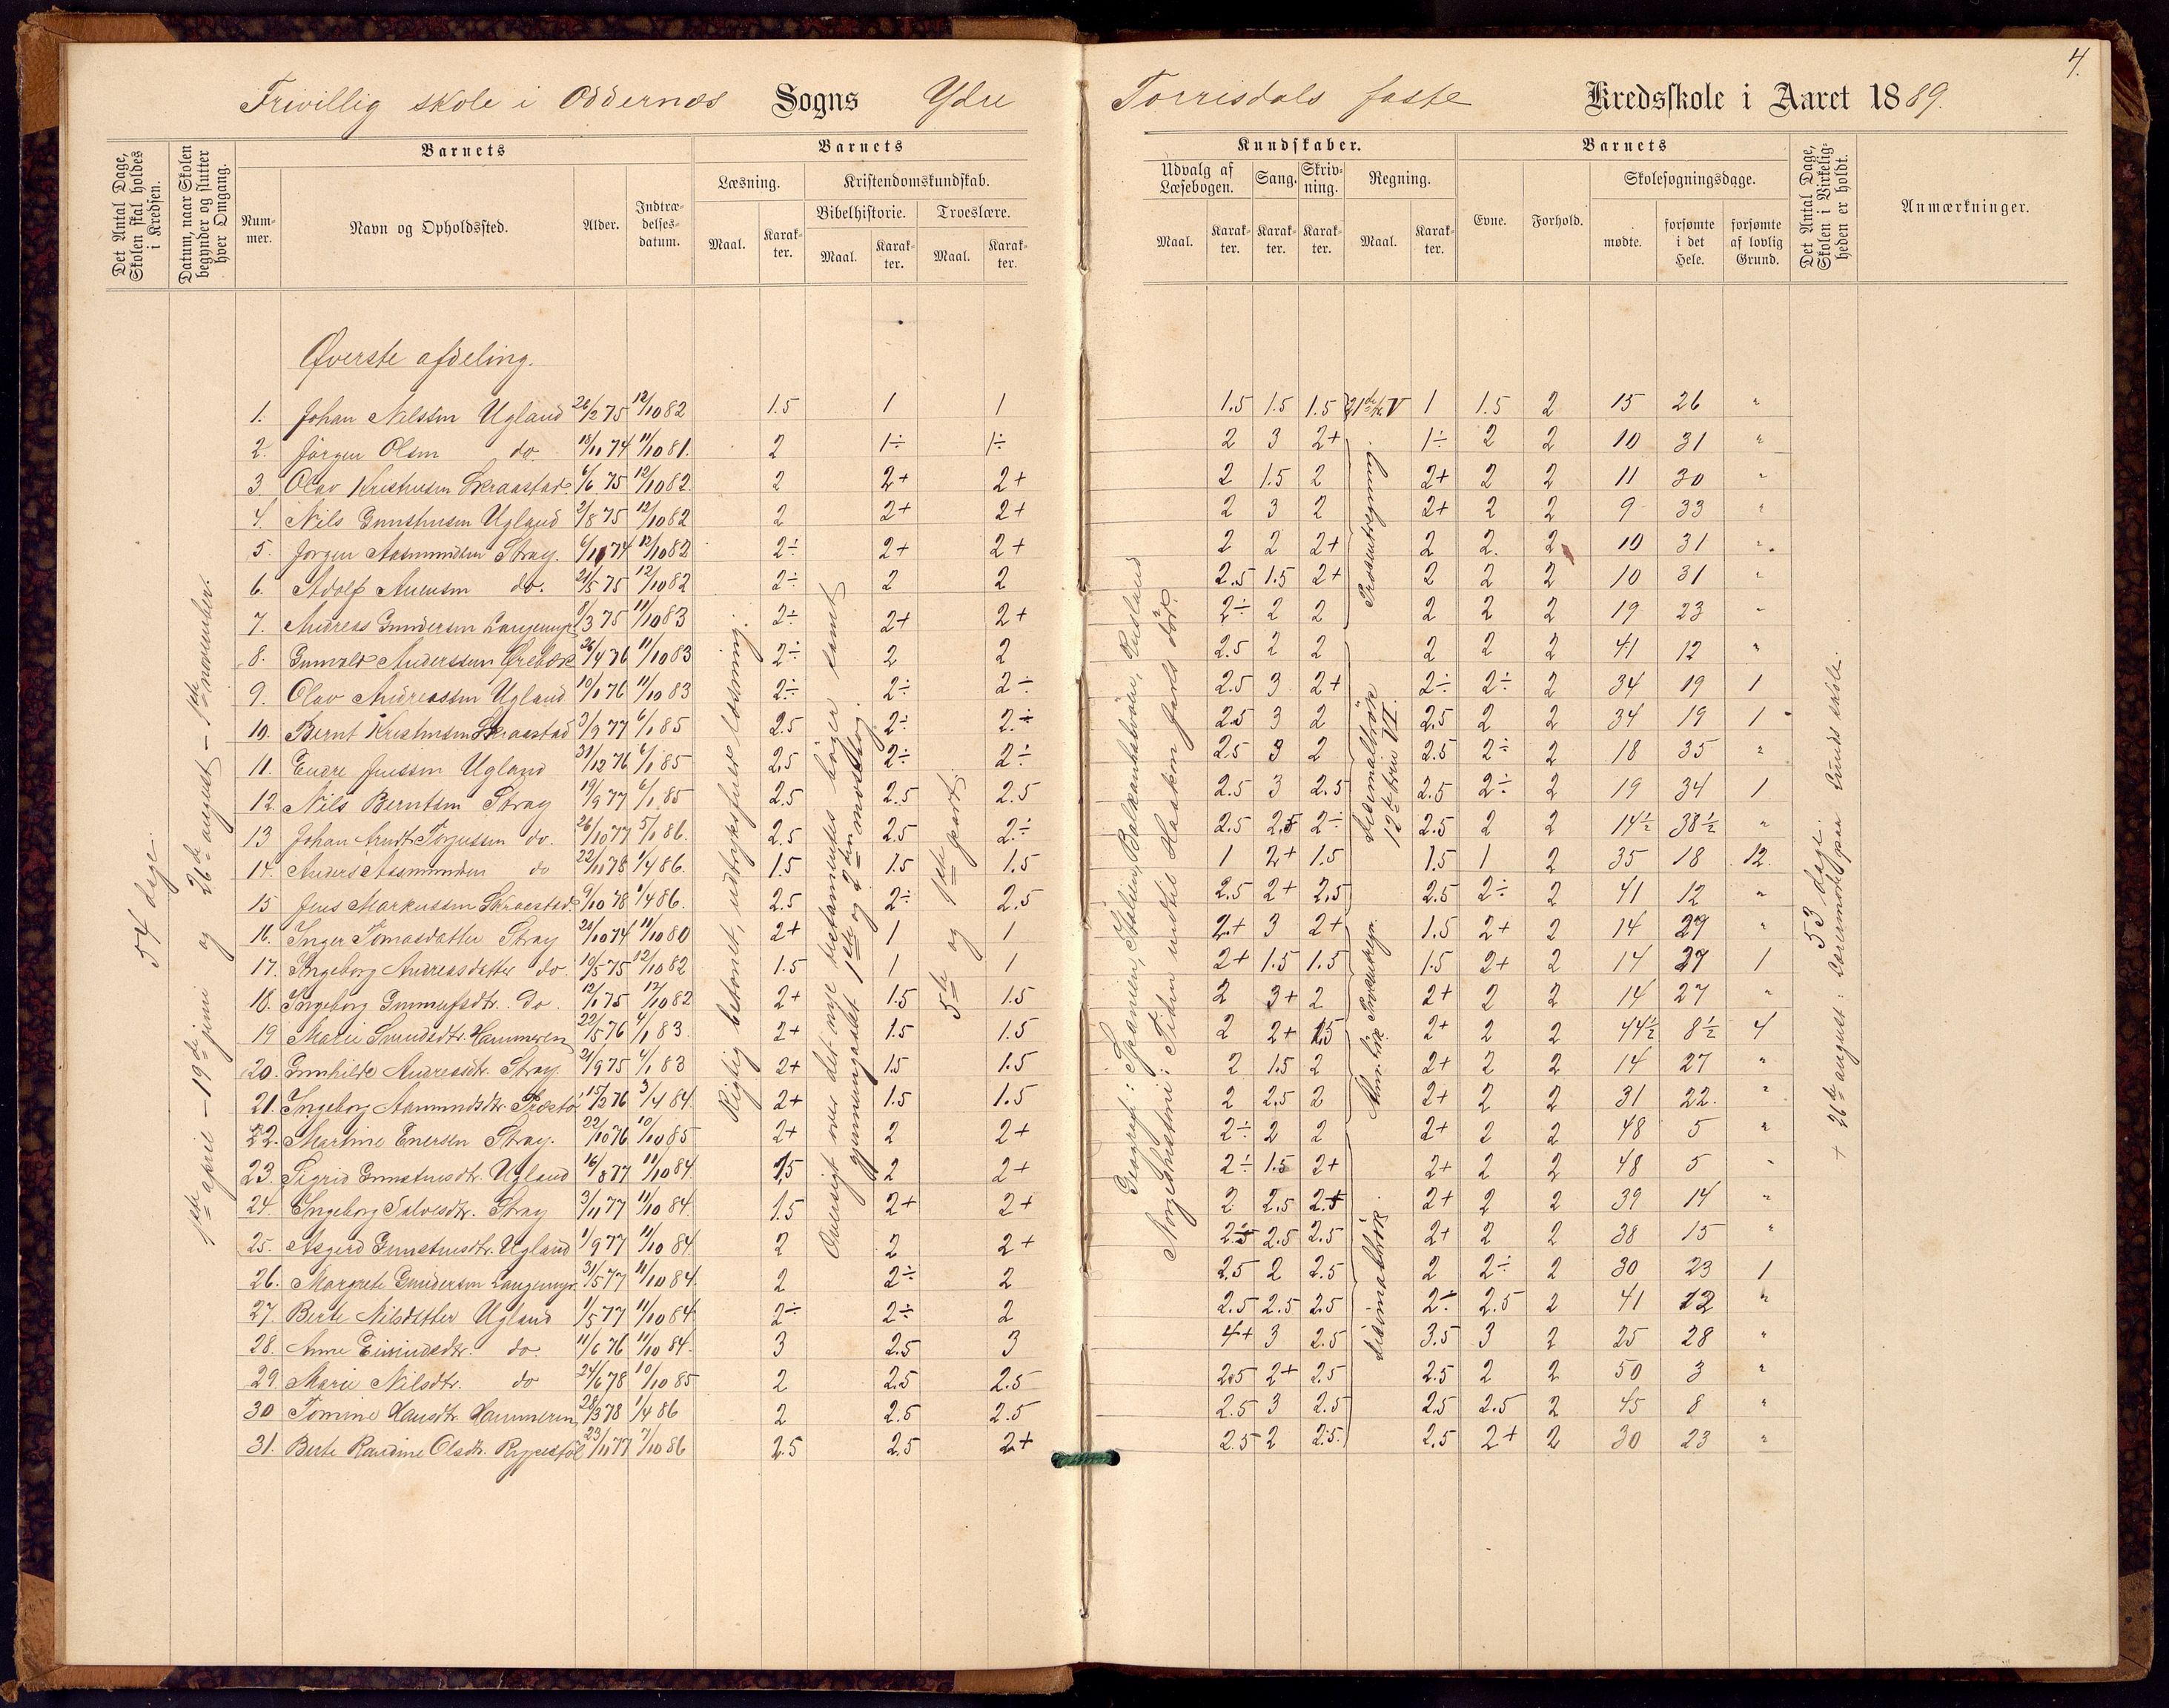 4.
Frivillig skole i Oddernæs Sogns Ydre Torrisdals faste Kredsskole i Aaret 1889.
Det Antal Dage, Skolen skal holdes i Kredsen.
Datum, naar Skolen begynder og slutter hver Omgang.
Barnets
Nummer.
Navn og Opholdssted.
Alder.
Indtrædelsesdatum.
Barnets
Læsning.
Maal.
Karakter.
Kristendomskundskab.
Bibelhistorie.
Maal.
Karakter.
Troeslære.
Maal.
Karakter.
Kundskaber.
Udvalg af Læsebogen.
Maal.
Karakter.
Sang.
Karakter.
Skrivning.
Karakter.
Regning.
Maal.
Karakter.
Barnets
Evne.
Forhold.
Skolesøgningsdage.
mødte.
forsømte i det Hele.
forsømte af lovlig Grund.
Det Antal Dage, Skolen i Virkeligheden er holdt.
Anmærkninger.
54 dage.
1ste april – 19de juni og 26de august – 1ste november.
Rigtig betonet, udtryksfuld læsning.
Oversigt over det nye testamentes bøger samt
gjennemgaaet 1ste og 2den mosebog.
5te og 1ste part.
Geografi: Spanien, Italien, Balkanhalvøen, Rusland
Norgeshistorie: Tiden indtil Haakon Jarls död.
53 dage.
+ 26de august: Lærermøde paa Lunds skole.
Øverste afdeling.
1. Johan Nilssen Ugland 26/2 75 12/10 82 1.5 1 1 1.5 1.5 1.5 V 1 1.5 2 15 26 "
2. Jörgen Olsen do. 18/11 74 11/10 81. 2 1÷ 1÷ 2 3 2+ Prosentregning. 1÷ 2 2 10 31 "
3 Olav Kristensen Skraastad. 6/6 75 12/10 82. 2 2+ 2+ 2 1.5 2 2+ 2 2 11 30 "
4. Nils Gunstensen Ugland 2/8 75 12/10 82 2 2+ 2+ 2 3 2 2+ 2 2 9 33 "
5. Jörgen Aasmundsen Stray. 12/10 82 2÷ 2+ 2+ 2 2 2+ 2 2. 2 10 31 "
6. Adolf do. 21/5 75 12/10 82 2÷ 2 2 2.5 1.5 2+ 2 2 2 10 31 "
7. Andreas Gundersen 8/3 75 11/10 83 2÷ 2+ 2+ 2÷ 2 2 2 2 2 19 23 "
8. Gunvald Anderssen 26/4 76 11/10 83 2÷ 2 2 2.5 2 2 2 2 2 41 12 "
9. Olav Andreassen Ugland 11/10 83 2÷ 2÷ 2÷ 2.5 3 2+ Desimalbrök 12te VI. 2÷ 2÷ 2 34 19 1
10. Bernt Kristensen Skraastad 3/9 77 6/1 85 2.5 2÷ 2÷ 2.5 3 2 2.5 2 2 34 19 1
11. Endre Jenssen Ugland 31/12 76 6/1 85 2.5 2÷ 2÷ 2.5 3 2 2.5 2÷ 2 18 35 "
12. Nils Berntsen Stray 19/9 77 6/1 85 2.5 2.5 2.5 2.5 3 2.5 2.5 2÷ 2 19 34 1
13 Johan Arndt Torgussen do. 26/10 77 5/1 86. 2.5 2.5 2÷ 2.5 2.5 2÷ 2.5 2 2 14½ 38½ "
14. Anders Aasmundsen do 22/11 78 1/4 86. 1.5 1.5 1.5 1 2+ 1.5 1.5 1 2 35 18 12.
15 Jens Markussen Skraastad. 9/10 78 1/4 86. 2.5 2÷ 2.5 2.5 2+ 2.5 2.5 2÷ 2 41 12 "
16. Inger Tomasdatter Stray 21/10 74 11/10 80 2+ 1 1 2+ 3 2+ 1.5 2+ 2 14 29 "
17. Ingeborg Andreasdatter do. 19/5 75 12/10 82 1.5 1 1 2+ 1.5 1.5 1.5 2+ 2 14 27 1
18. Ingeborg do. 12/1 75 12/10 82 2+ 1.5 1.5 2 3+ 2 2+ 2 2 14 27 "
19 Marie Hammeren 22/5 76 4/1 83. 2+ 1.5 1.5 2 2+ 1.5 2+ 2 2 44½ 8½ 4
20. Gunhilde Andreasdtr. Stray. 21/9 75 4/1 83 2+ 1.5 1.5 2 1.5 2 2+ 2 2 14 27 "
21. Ingeborg Aamundsdtr. 15/2 76 3/4 84. 2+ 1.5 1.5 2 2.5 2 2+ 2 2 31 22. "
22. Martine Enersen Stray. 22/10 76 10/10 85 2+ 2 2+ 2÷ 2 2 2+ 2 2 48 5 "
23. Sigrid Gunstensdtr. Ugland 16/8 77 11/10 84. 1.5 2 2+ 2÷ 1.5 2+ 2+ 2 2 48 5 "
24. Ingeborg Salvesdtr. Stray 3/11 77 11/10 84. 1.5 2+ 2+ 2 2.5 2+ Desimalbrök. 2+ 2 2 39 14 "
25. Asgerd Gunstensdtr. Ugland 1/9 77 11/10 84. 2 2 2+ 2.5 2.5 2+ 2 2 38 15 "
26. Margrete Gundersen 31/5 77 11/10 84. 2 2÷ 2 2.5 2 2.5 2 2÷ 2 30 23 1
27. Berte Nilsdatter Ugland 1/5 77 11/10 84. 2÷ 2÷ 2 2.5 2.5 2.5 2÷ 2.5 2 41 12 "
28. Anne do. 11/6 76 11/10 84. 3 2.5 3 4+ 3 2.5 3.5 3 2 25 28 "
29. Marie Nilsdtr. do 24/6 78 10/10 85 2 2.5 2.5 2.5 2+ 2.5 2.5 2 2 50 3 "
30 Tomine Hansdtr. Hammeren 28/3 78 1/4 86 2 2.5 2.5 2.5 3 2.5 2.5 2.5 2 45 8 "
31. Berte Olsdtr. 23/11 77 7/10 86 2.5 2.5 2+ 2.5 2 2.5. 2.5 2+ 2 30 23 "